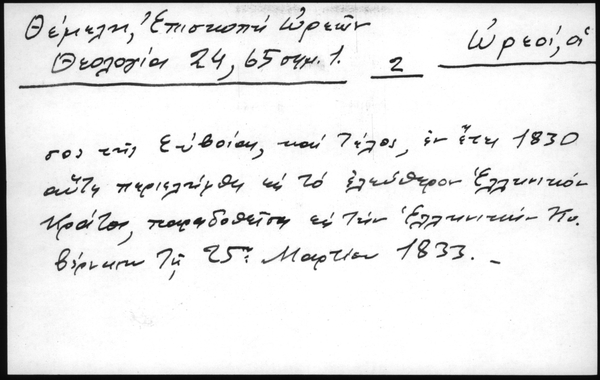 Θέμελη, Ἐπισκοπή Ὠρεῶν
Ὠρεοί, οἱ
Θεολογία 24, 65 σημ. 1.
2
σος τῆς Εὐβοίας, καί τέλος, ἐν ἔτει 1830
αὕτη περιελήφθη εἰς τό ἐλεύθερον Ἑλληνικόν
Κράτος, παραδοθεῖσα εἰς τήν Ἑλληνικήν Κυ-
βέρνησιν τῇ 25ῃ Μαρτίου 1833. -